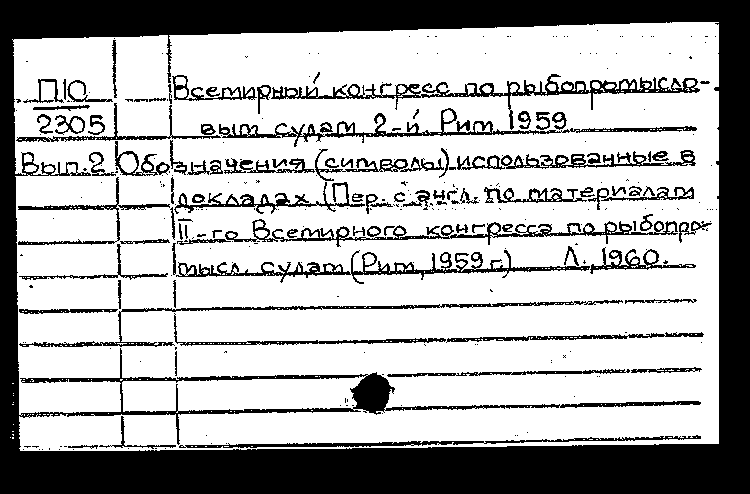 П10 Всемирный конгресс по рыбопромысло-
2305 вым судам, 2-й. Рим. 1959
Вып.2 Обозначения (символы) использованные в
докладах. (Пер. с англ. по материалам
II-го Всемирного конгресса по рыбопро-
мысл. судам (Рим, 1959 г.) Л., 1960.